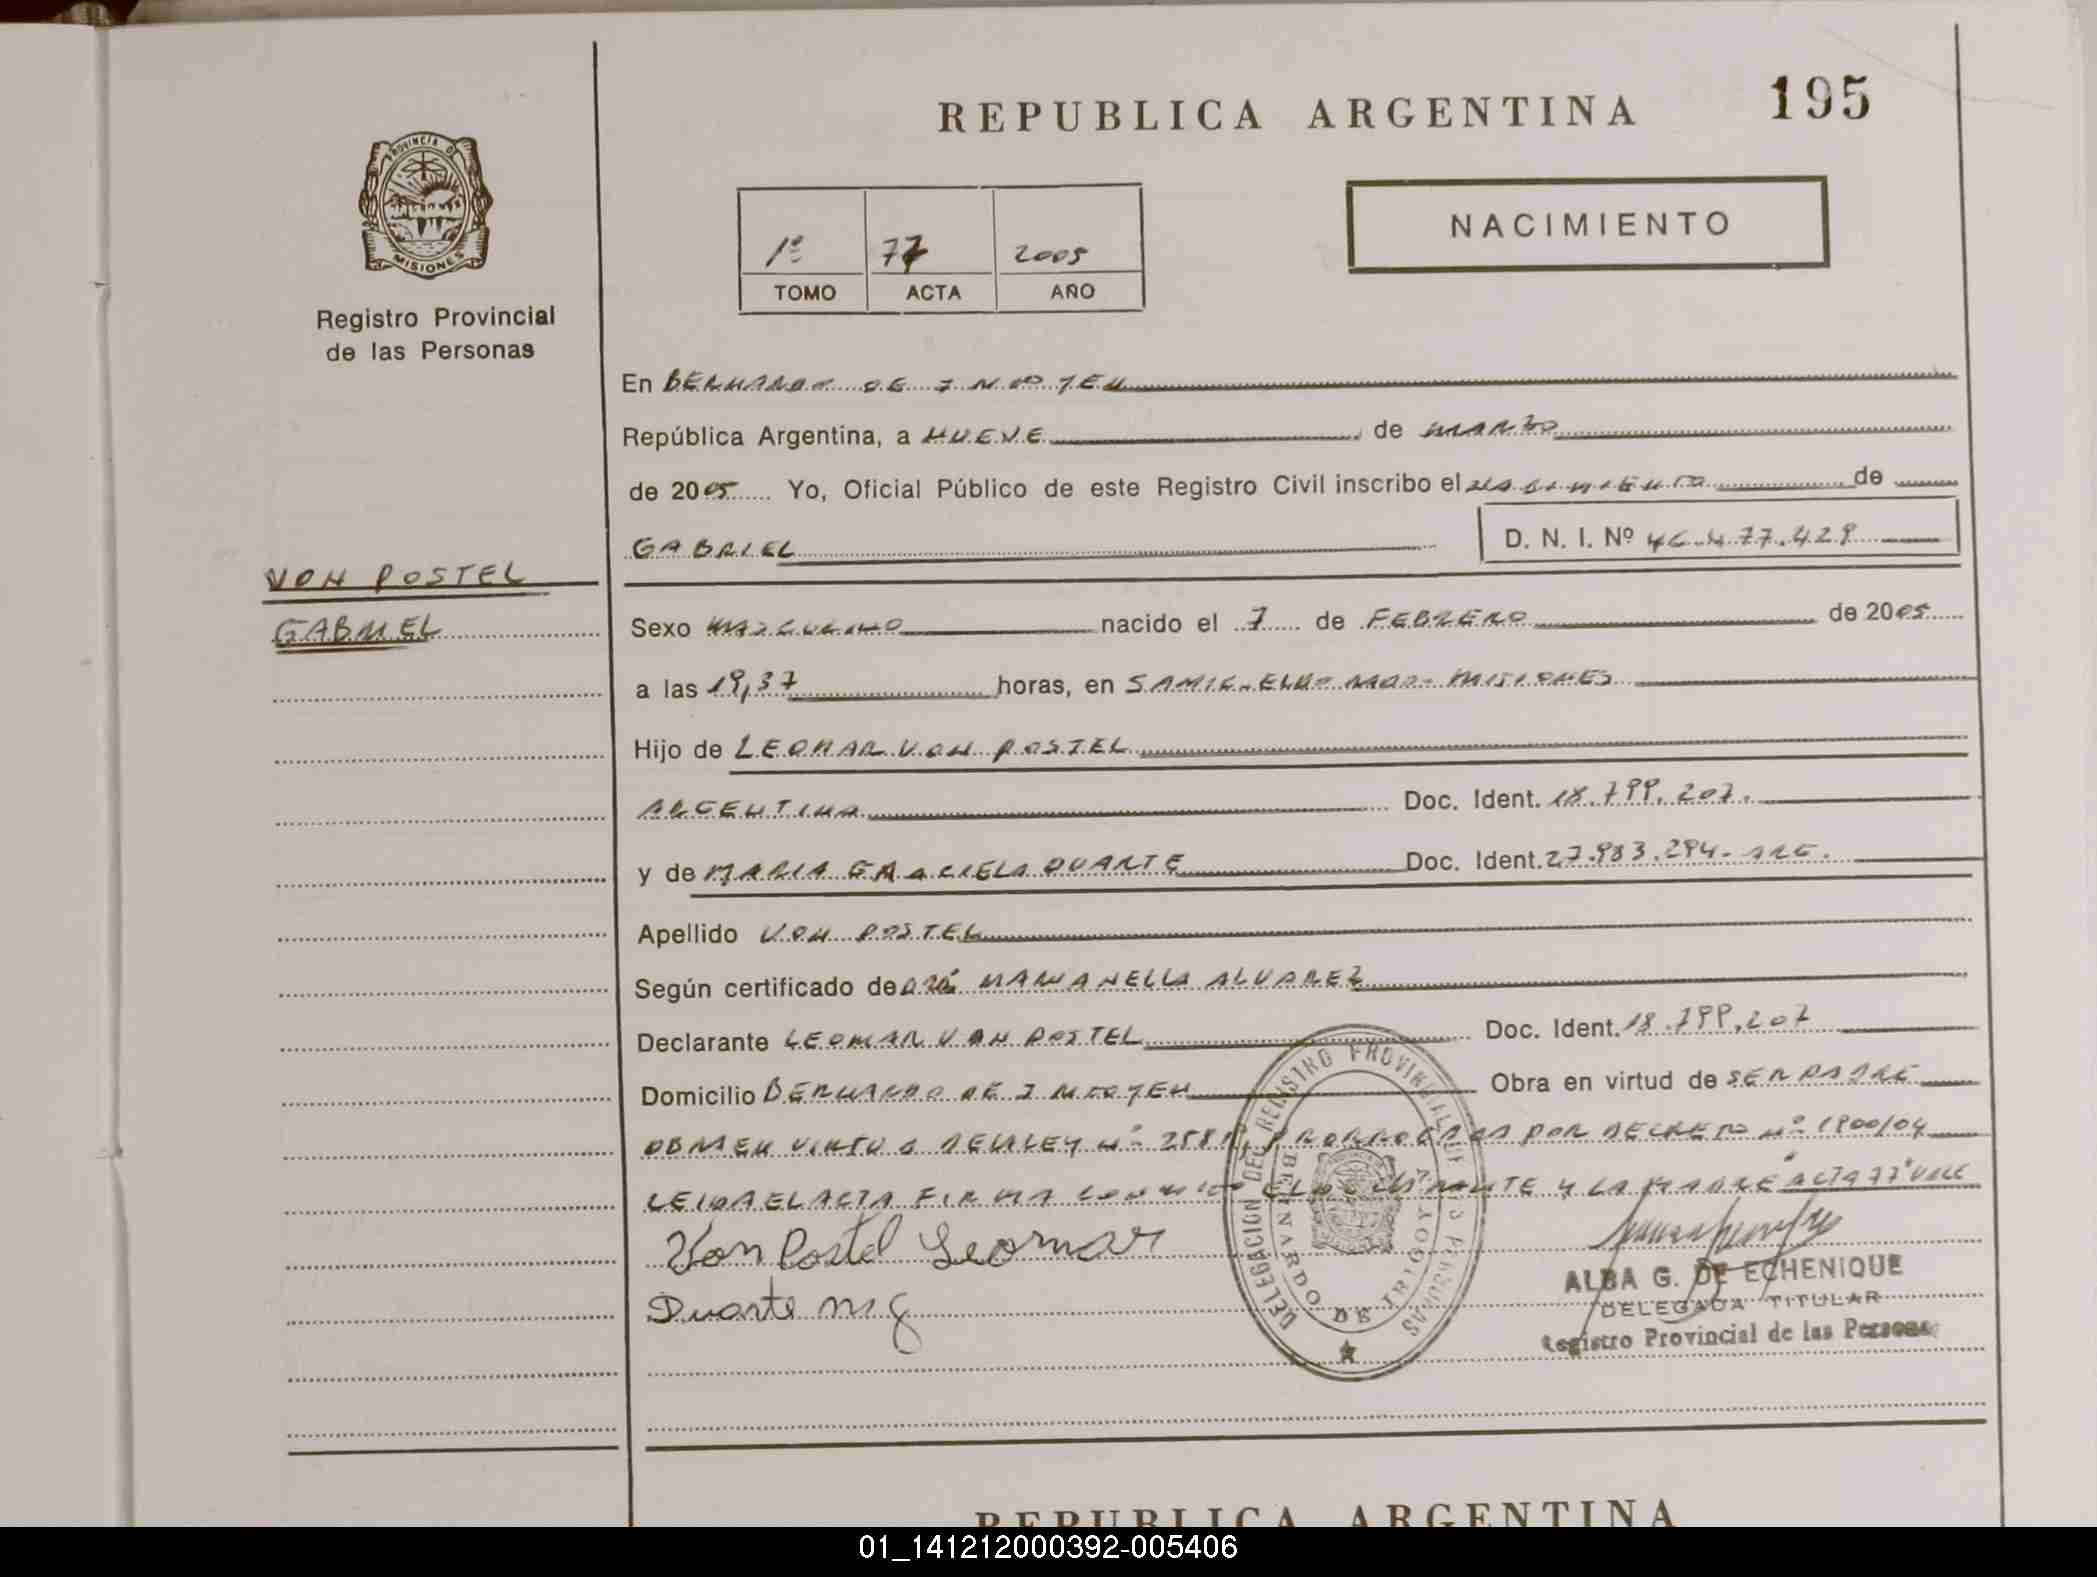 REPUBLICA ARGENTINA 195
PROVINCIA DE
MISIONES
Registro Provincial
de las Personas
1º 77 2005
TOMO ACTA AÑO
NACIMIENTO
En BERNARDO DE IRIGOYEN
República Argentina, a NUEVE de MARZO
de 2005 Yo, Oficial Público de este Registro Civil inscribo el NACIMIENTO de
GABRIEL D. N. I. Nº 46.477.429
VON POSTEL
GABRIEL
Sexo MASCULINO nacido el 7 de FEBRERO de 2005
a las 19,37 horas, en MISIONES
Hijo de LEOMAR VON POSTEL
ARGENTINA Doc. Ident. 18.799.207.
y de MARIA GRACIELA DUARTE Doc. Ident. 27.983.294- ARG.
Apellido VON POSTEL
Según certificado de DRA MARIANELLA ALVAREZ
Declarante LEOMAR VON POSTEL Doc. Ident. 18.799.207
Domicilio BERNARDO DE IRIGOYEN Obra en virtud de SER PADRE
OBRA EN VIRTUD DE LA LEY Nº PRORROGADA POR DECRETO Nº 1900/04
LEIDA EL ACTA FIRMA CONMIGO EL DECLARANTE Y LA MADRE "ACTA 77" VALE
Von Postel Leomar
Duarte M G
DELEGACION DEL REGISTRO PROVINCIAL DE LAS PERSONAS
BERNARDO DE IRIGOYEN
ALBA G. DE ECHENIQUE
DELEGADA TITULAR
Registro Provincial de las Personas
REPUBLICA ARGENTINA
01_141212000392-005406